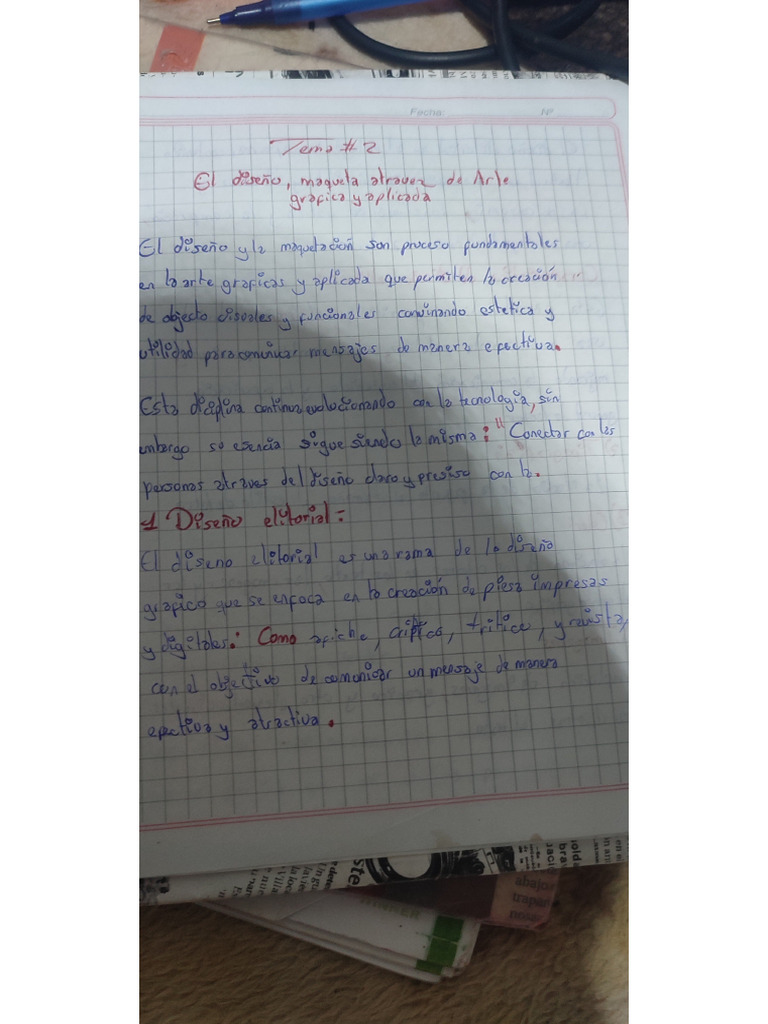 Fecha: Nº
Tema # 2
El diseño, maqueta atravez de Arte
grafica y aplicada
El diseño y la maquetación son proceso fundamentales
en la arte graficas y aplicada que permiten la creación
de objecto visuales y funcionales convinando estetica y
utilidad para comunicar mensajes de manera efectiva.
Esta diciplina continua evolucionando con la tecnologia, sin
embargo su esencia sigue siendo la misma: "Conectar con las
personas atraves del diseño claro y presiso con la.
1 Diseño elitorial:
El diseno elitorial es una rama de lo diseño
grafico que se enfoca en la creación de piesa impresas
y digitales: Como afiche, tritice, y revista,
con el objetivo de comunicar un mensaje de manera
efectiva y atractiva.